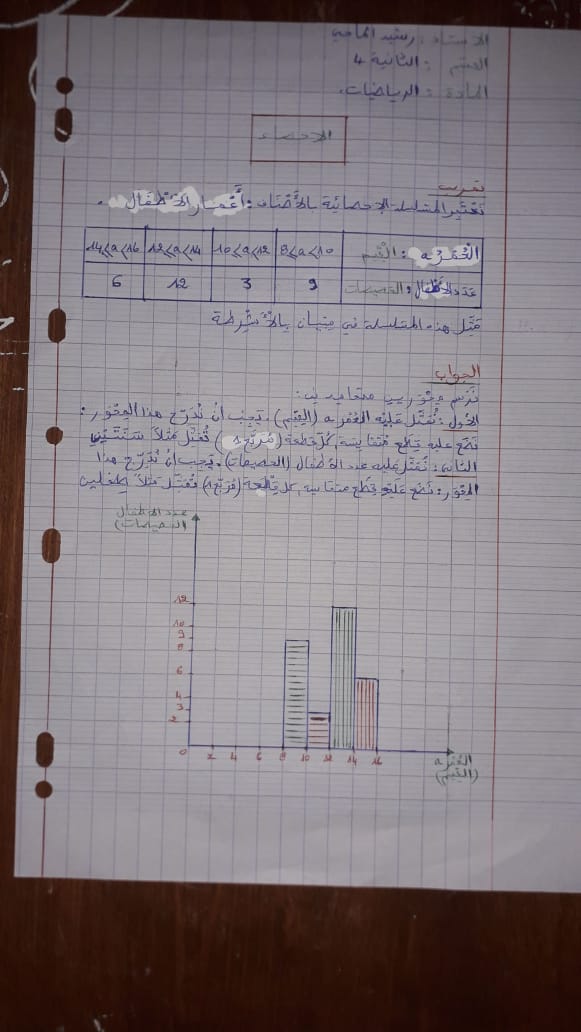 الأستاذ: رشيد الماحي
القسم: الثانية 4
المادة: الرياضيات.
الإحصاء
تمرين
نعتبر المتسلسلة الإحصائية بالأصناف: أعمار الأطفال.
العمر a: القيم 8≤a<10 10≤a<12 12≤a<14 14≤a<16
عدد الأطفال: الحصيصات 9 3 12 6
مثل هذه المتسلسلة في مبيان بالأشرطة
الجواب
نرسم محورين متعامدين:
الأول: نمثل عليه العمر a (القيم). يجب أن ندرج هذا المحور:
نضع عليه قطع متقايسة، كل قطعة (مربع 1) تمثل مثلا سنتين
الثاني: نمثل عليه عدد الأطفال (الحصيصات). يجب أن ندرج هذا
المحور: نضع عليه قطع متقايسة، كل قطعة (مربع 1) تمثل مثلا طفلين
عدد الأطفال
(الحصيصات)
12
10
9
8
6
4
3
2
0 2 4 6 8 10 12 14 16
العمر a
(القيم)